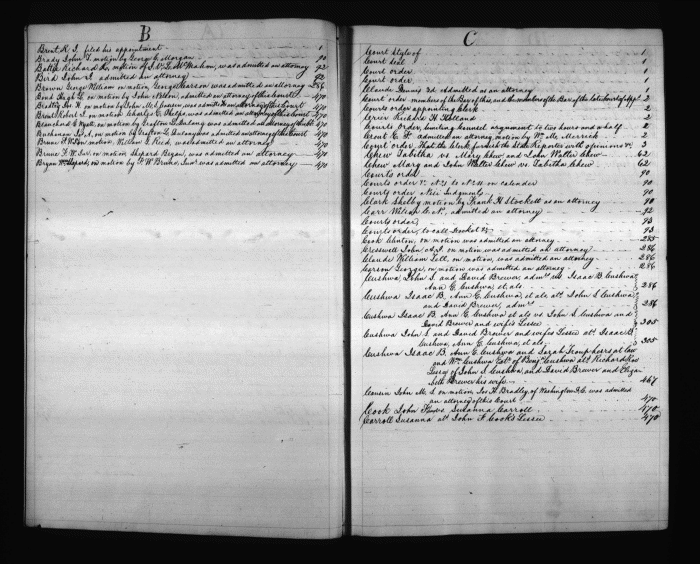 B
Brent, R. J. filed his appointment 1
Brady John T. motion by George C. Morgan 90
Battee Richard H. on motion of J. V. L. McMahon, was admitted an attorney 92
Bird John T. admitted an attorney 92
Brown George William on motion, George Pearson was admitted an attorney 286
Bond Hugh L. on motion by John Nelson, admitted an attorney of this Court 470
Bradley Jos. H. on motion by John M. S. Causin, was admitted an attorney of this Court 470
Brent Robert J. on motion by Charles E. Phelps, was admitted an attorney of this Court 470
Blanchard E. Wyatt, on motion by Grafton L. Dulany was admitted an attorney of this Court 470
Buchanan A. on motion by Grafton L. Dulany was admitted an attorney of this Court 470
Brune F. W. on motion, William G. Read, was admitted an attorney 470
Brune F. W. Jur. on motion Shepard Bryan, was admitted an attorney 470
Bryan Wm. Shepard, on motion by F. W. Brune, Junr. was admitted an attorney 470
C
Court style of 1
Court seal 1
Court order 1
Court order 1
Claude Dennis 3d admitted as an attorney 1
Court order members of the Bar of this, and the members of the Bar of the late Court of App. 2
Courts order appointing Clerk 2
Crier Richard H. Holland 2
Courts Order, limiting counsel argument to two hours and a half 2
Crout C. F. admitted an attorney, motion by Wm. M. Merrick 2
Court order, That the clerk furnish the State Reporter with opinions &c 3
Chew Tabitha vs Mary Chew and John Walter Chew 62
Chew Mary and John Walter Chew vs. Tabitha Chew 62
Courts order 90
Courts order to No. 14 on calender 90
Courts order Nisi Judgments 90
Clark Shelby motion by Frank H. Stockett as an attorney 90
Carr Wilson C. N., admitted an attorney 92
Courts order, 93
Courts order, to call Docket &c 93
Cook Clinton, on motion was admitted an attorney 285
Cresswell John A. J. on motion, was admitted an attorney 286
Claude William Tell, on motion, was admitted an attorney 286
Carson George, on motion was admitted an attorney 286
Cushwa, John S. and David Brewer, admrs. vs Isaac B. Cushwa,
Ann C. Cushwa, et als 286
Cushwa Isaac B. Ann C. Cushwa, et als ats John S. Cushwa,
and David Brewer, admrs. 286
Cushwa Isaac B. Ann C. Cushwa et als vs John S. Cushwa and
David Brewer and wife's Lessee 305
Cushwa John S. and David Brewer and wifes Lessee ats Isaac B.
Cushwa, Ann C. Cushwa, et als 305
Cushwa Isaac B. Ann C. Cushwa and Sarah Troup heirs at law
and Wm. Cushwa Exr. of Benj. Cushwa ats Richard
Lessee of John S. Cushwa, and David Brewer and Eliza
beth Brewer his wife 467
Causin John M. S. on motion, Jos. H. Bradley, of Washington D.C. was admitted
an attorney of this Court 470
Cook John F. Susanna Carroll 470
Carroll Susanna ats John F. Cook's Lessee 470